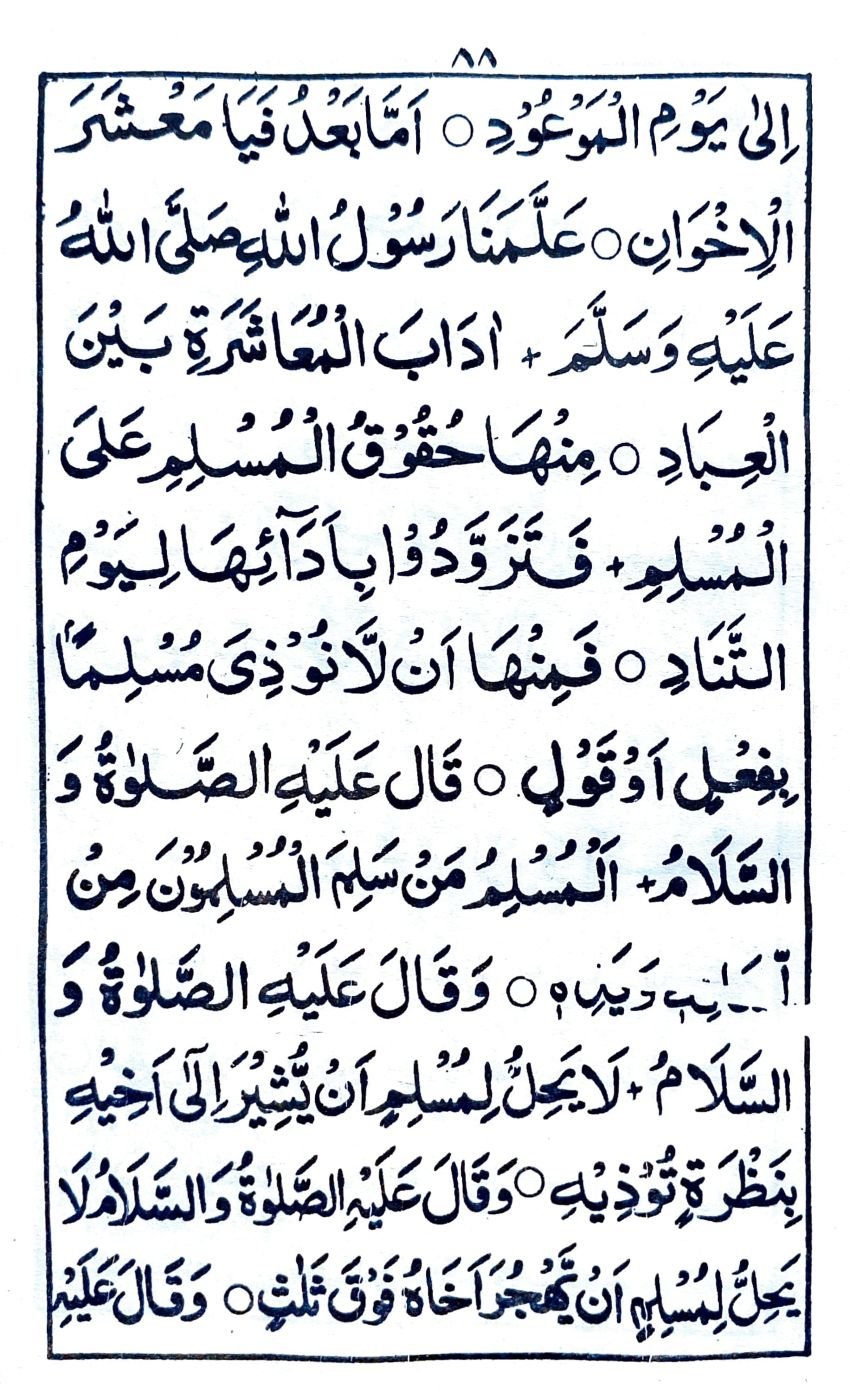 ٨٨
اِلٰى يَوْمِ الْمَوْعُوْدِ ○ اَمَّا بَعْدُ فَيَا مَعْشَرَ
الْاِخْوَانِ ○ عَلَّمَنَا رَسُوْلُ اللهِ صَلَّى اللهُ
عَلَيْهِ وَسَلَّمَ + اٰدَابَ الْمُعَاشَرَةِ بَيْنَ
الْعِبَادِ ○ مِنْهَا حُقُوْقُ الْمُسْلِمِ عَلَى
الْمُسْلِمِ + فَتَزَوَّدُوْا بِاَدَآئِهَا لِيَوْمِ
التَّنَادِ ○ فَمِنْهَا اَنْ لَّا نُوْذِىَ مُسْلِمًا
بِفِعْلٍ اَوْ قَوْلٍ ○ قَالَ عَلَيْهِ الصَّلٰوةُ وَ
السَّلَامُ + اَلْمُسْلِمُ مَنْ سَلِمَ الْمُسْلِمُوْنَ مِنْ
وَيَدِهٖ ○ وَقَالَ عَلَيْهِ الصَّلٰوةُ وَ
السَّلَامُ + لَا يَحِلُّ لِمُسْلِمٍ اَنْ يُّشِيْرَ اِلٰٓى اَخِيْهِ
بِنَظْرَةٍ تُوْذِيْهِ ○ وَقَالَ عَلَيْهِ الصَّلٰوةُ وَالسَّلَامُ لَا
يَحِلُّ لِمُسْلِمٍ اَنْ يَّهْجُرَ اَخَاهُ فَوْقَ ثَلٰثٍ ○ وَقَالَ عَلَيْهِ